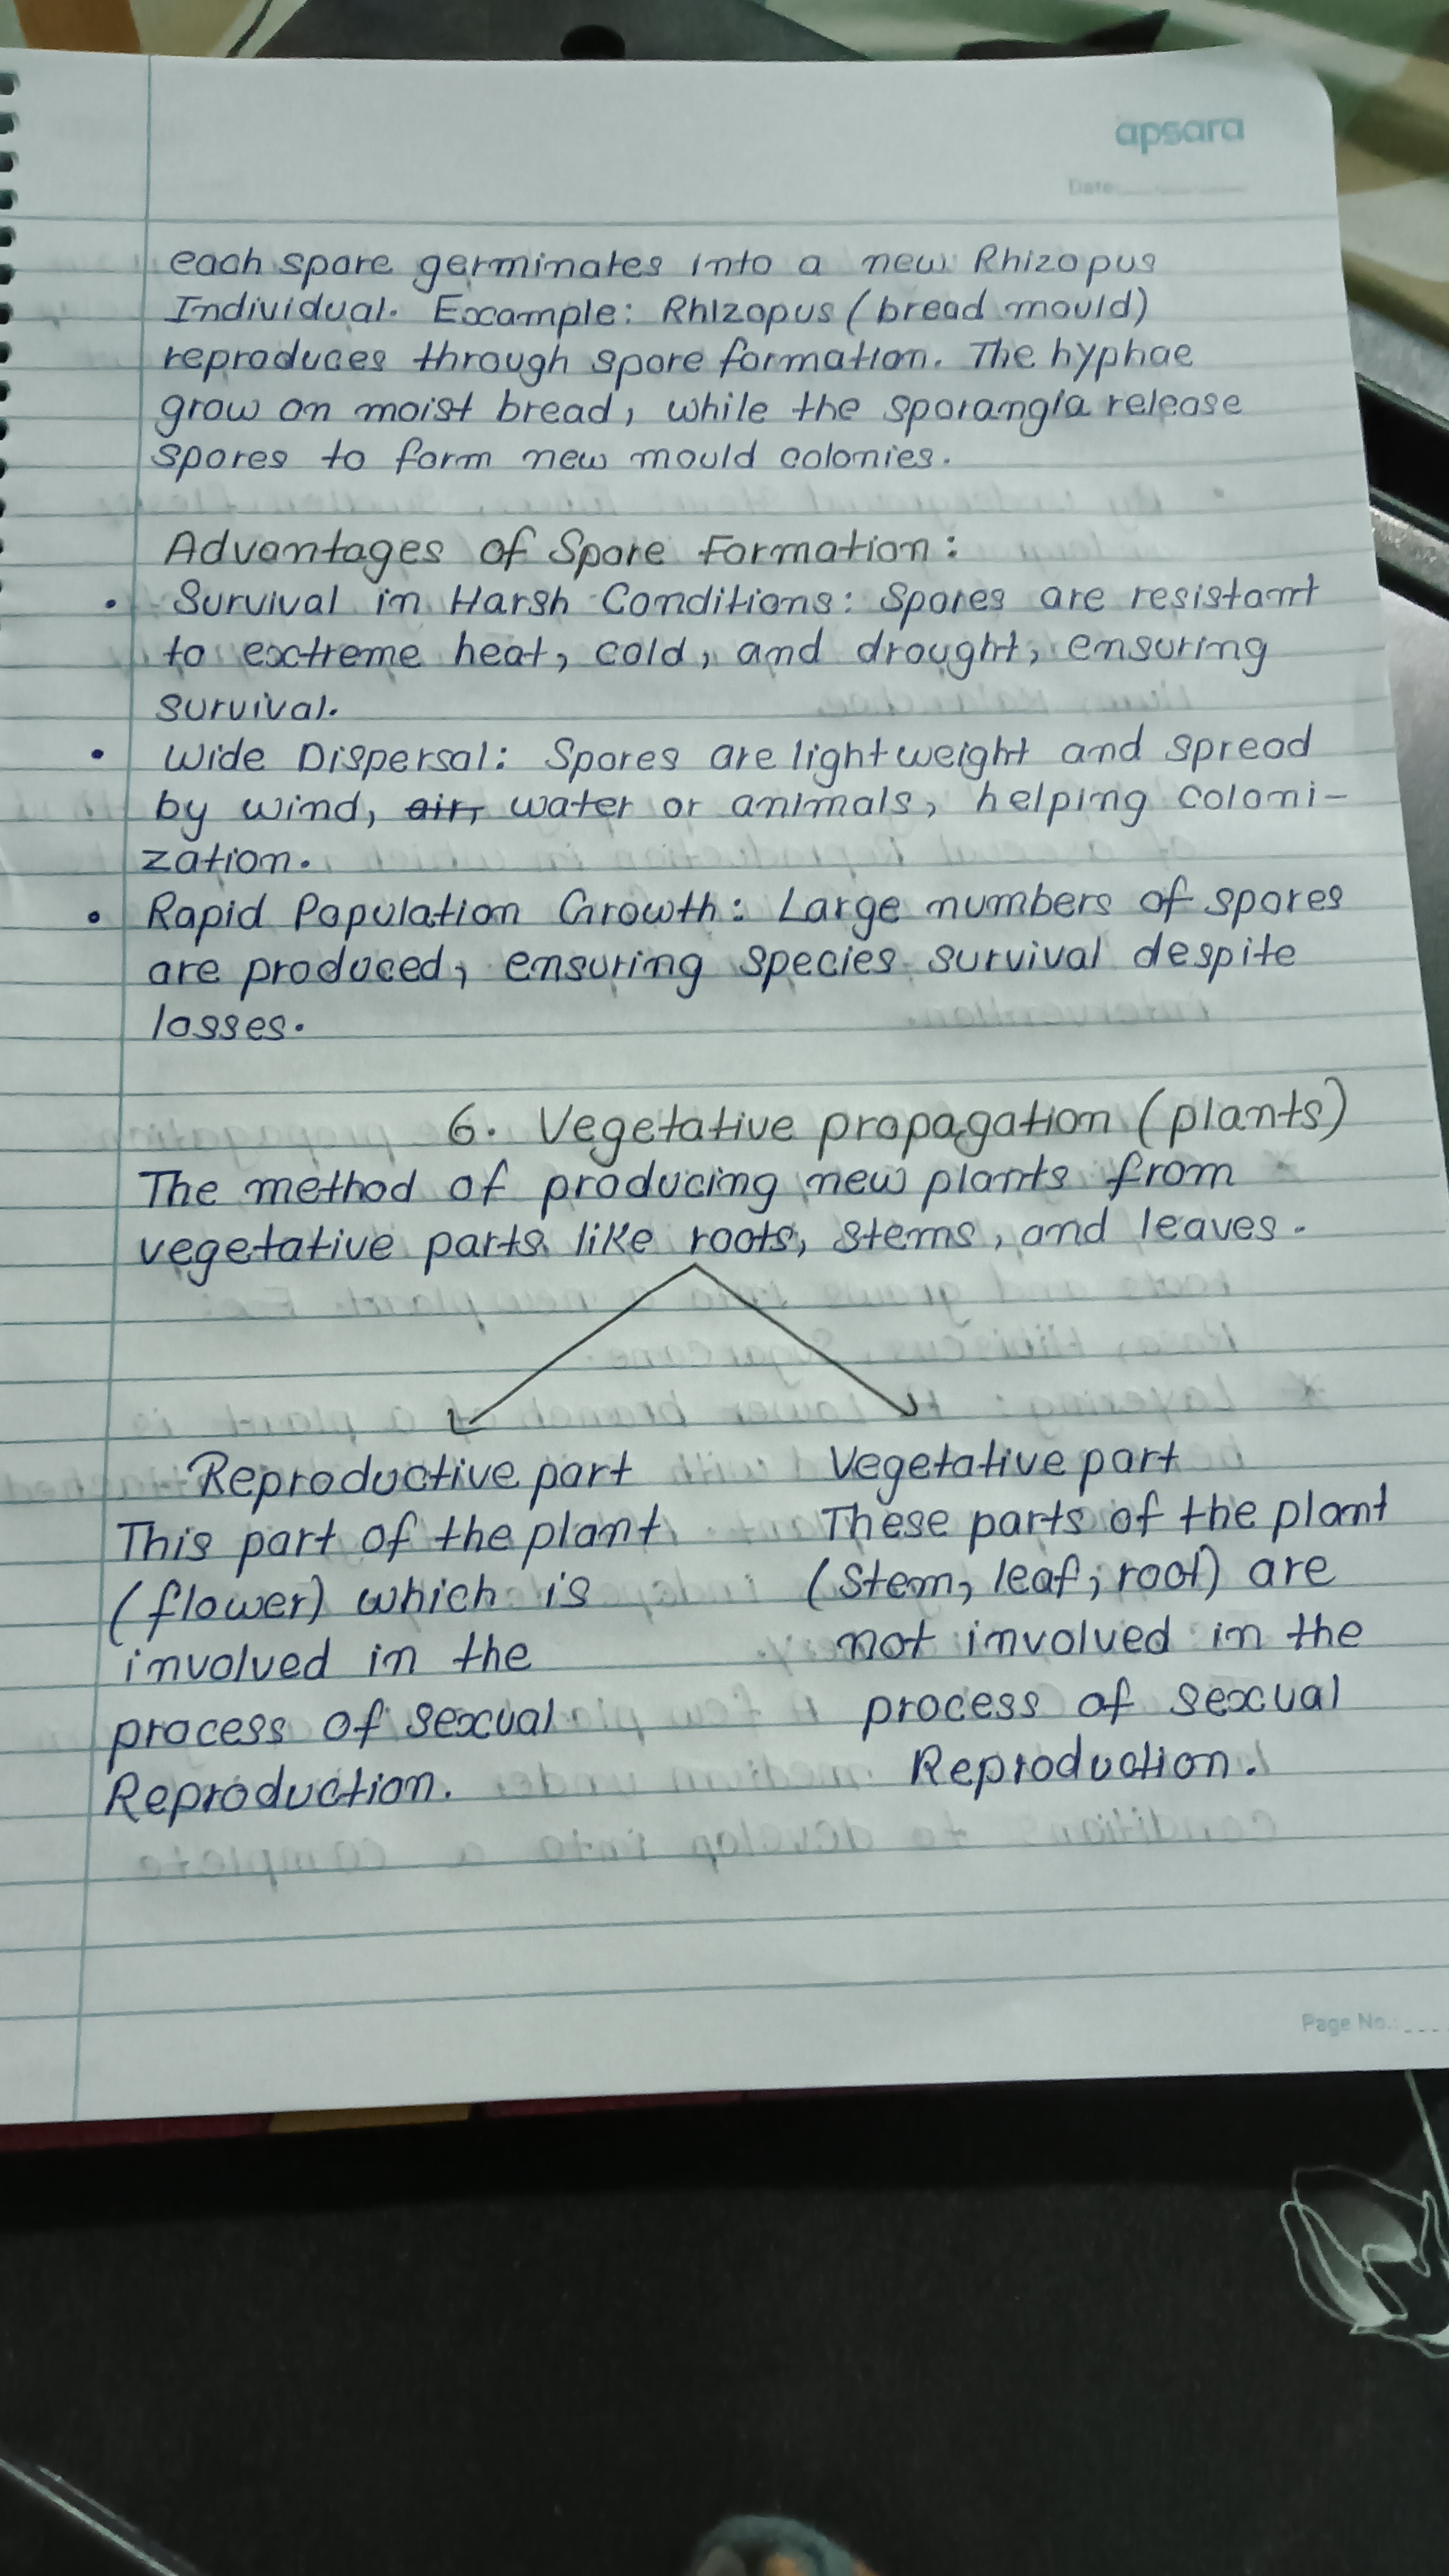 apsara
Date
each spore germinates into a new Rhizopus
Individual. Example: Rhizopus (bread mould)
reproduces through spore formation. The hyphae
grow on moist bread, while the sporangia release
spores to form new mould colonies.
Advantages of Spore Formation:
• Survival in Harsh Conditions: Spores are resistant
to extreme heat, cold, and drought, ensuring
survival.
• Wide Dispersal: Spores are lightweight and spread
by wind, air, water or animals, helping coloni-
zation.
• Rapid Population Growth: Large numbers of spores
are produced, ensuring species survival despite
losses.
6. Vegetative propagation (plants)
The method of producing new plants from
vegetative parts like roots, stems, and leaves.
Reproductive part
This part of the plant
(flower) which is
involved in the
process of sexual
Reproduction.
Vegetative part
These parts of the plant
(stem, leaf, root) are
not involved in the
process of sexual
Reproduction.
Page No.: